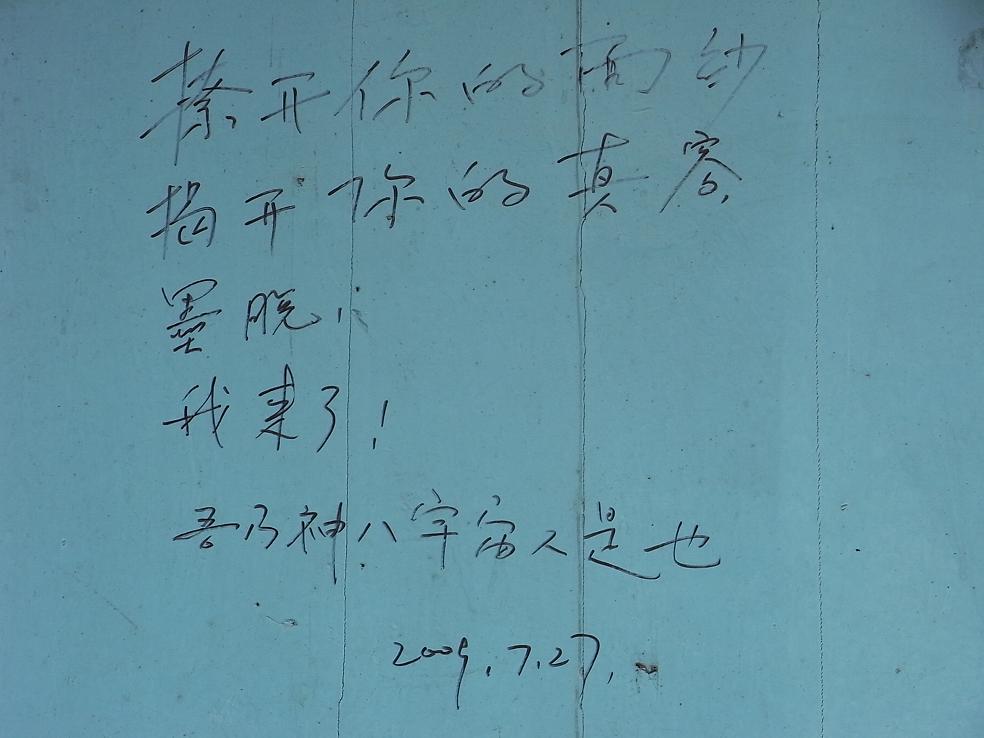 撩开你的面纱
揭开你的真容
墨脱,
我来了!
吾乃神八宇宙人是也
2009.7.27.